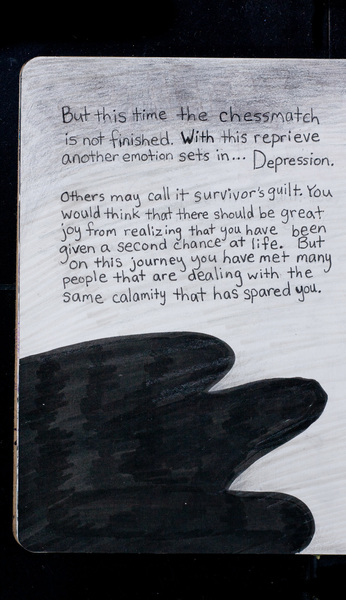 But this time the chessmatch
is not finished. With this reprieve
another emotion sets in... Depression.
Others may call it survivor's guilt. You
would think that there should be great
joy from realizing that you have been
given a second chance at life. But
on this journey you have met many
people that are dealing with the
same calamity that has spared you.